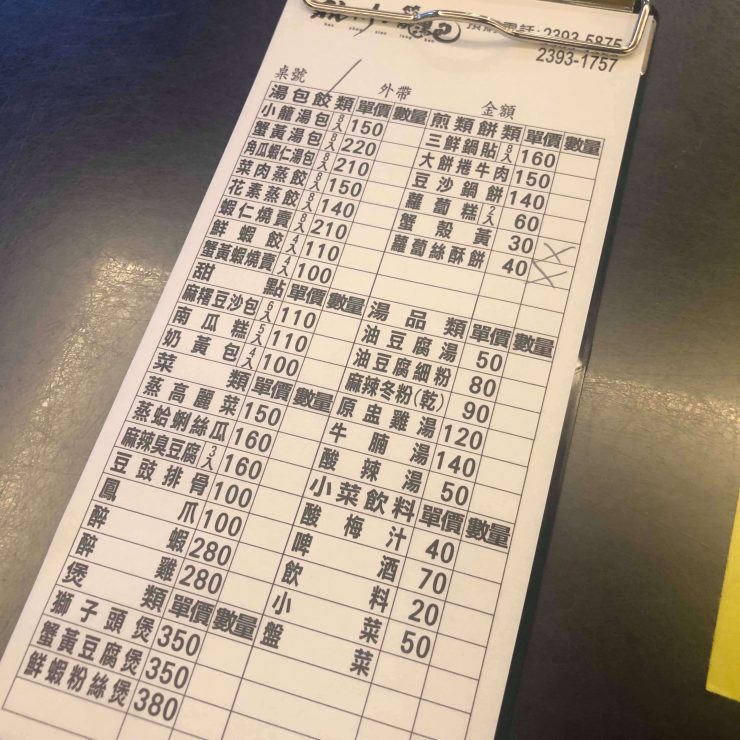 預約電話:2393-5875
2393-1757
桌號 外帶 金額
湯包餃類 單價 數量
小籠湯包 8入 150
蟹黃湯包 8入 220
角瓜蝦仁湯包 8入 210
菜肉蒸餃 8入 150
花素蒸餃 8入 140
蝦仁燒賣 8入 210
鮮蝦餃 4入 110
蟹黃蝦燒賣 4入 100
甜點 單價 數量
麻糬豆沙包 6入 110
南瓜糕 5入 110
奶黃包 4入 100
菜類 單價 數量
蒸高麗菜 150
蒸蛤蜊絲瓜 160
麻辣臭豆腐 3入 160
豆豉排骨 100
鳳爪 100
醉蝦 280
醉雞 280
煲類 單價 數量
獅子頭煲 350
蟹黃豆腐煲 350
鮮蝦粉絲煲 380
煎類餅類 單價 數量
三鮮鍋貼 8入 160
大餅捲牛肉 150
豆沙鍋餅 140
蘿蔔糕 2入 60
蟹殼黃 30
蘿蔔絲酥餅 40
湯品類 單價 數量
油豆腐湯 50
油豆腐細粉 80
麻辣冬粉(乾) 90
原盅雞湯 120
牛腩湯 140
酸辣湯 50
小菜飲料 單價 數量
酸梅汁 40
啤酒 70
飲料 20
小菜 50
盤菜